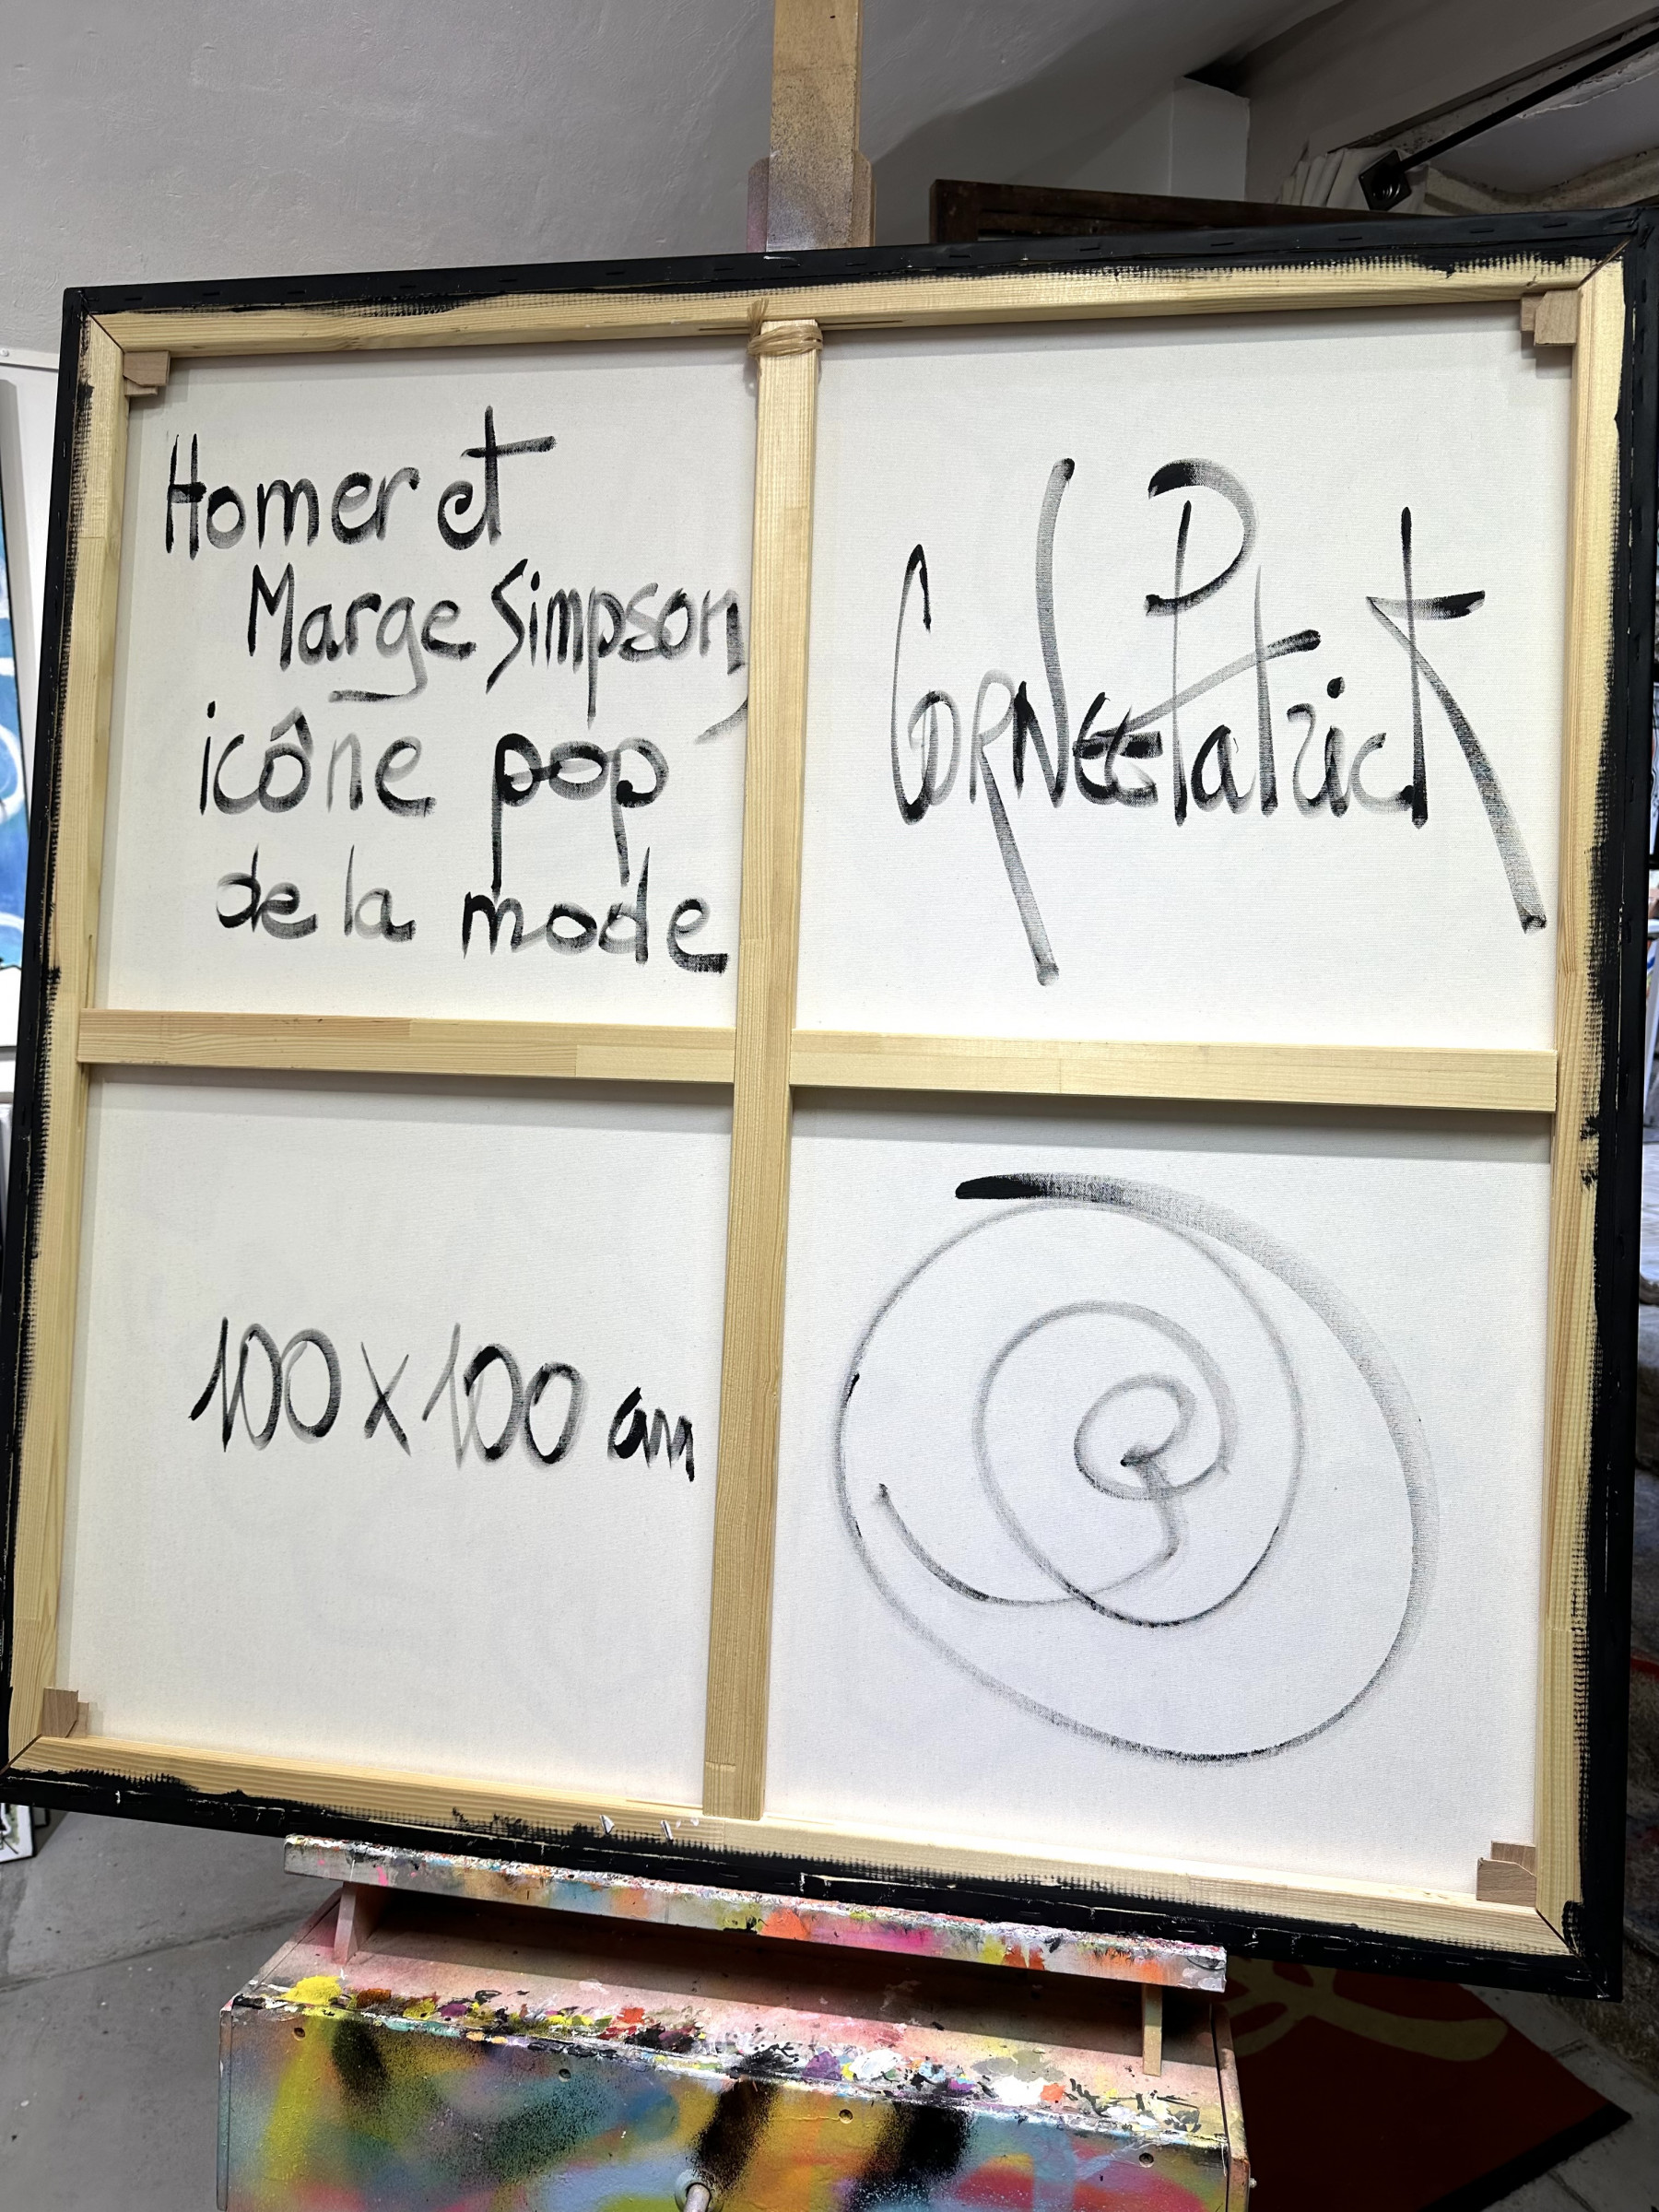 Homer et
Marge Simpson,
icône pop
de la mode
CORNEE Patrick
100 x 100 cm